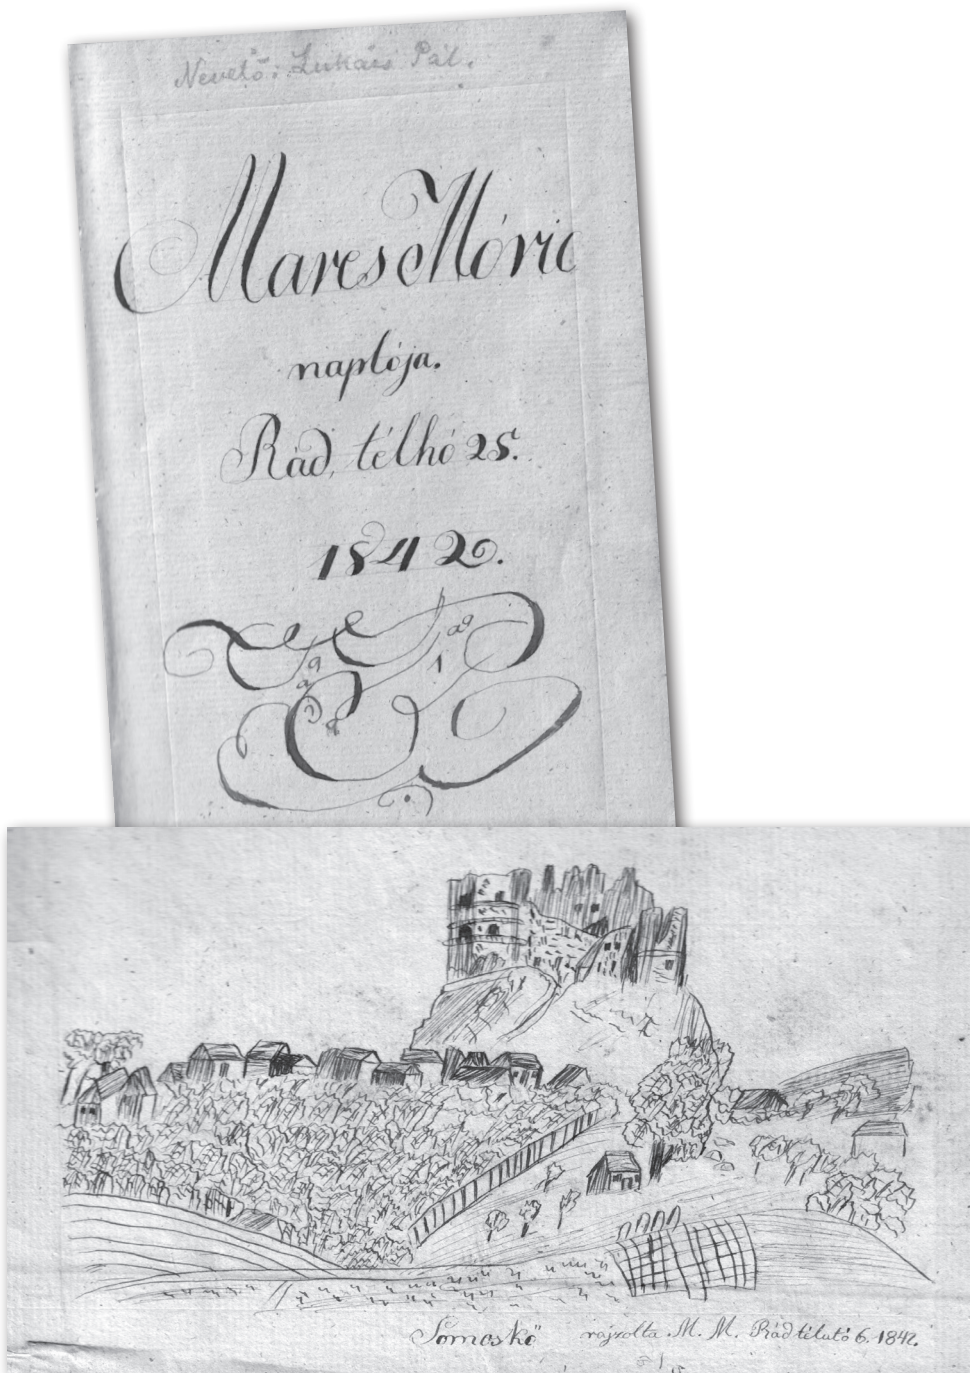 Nevelő: Lukács Pál.
Mares Móric
naplója.
Rád, télhó 25.
1842.
Somoskő rajzolta M. M. Rád télutó 6. 1842.